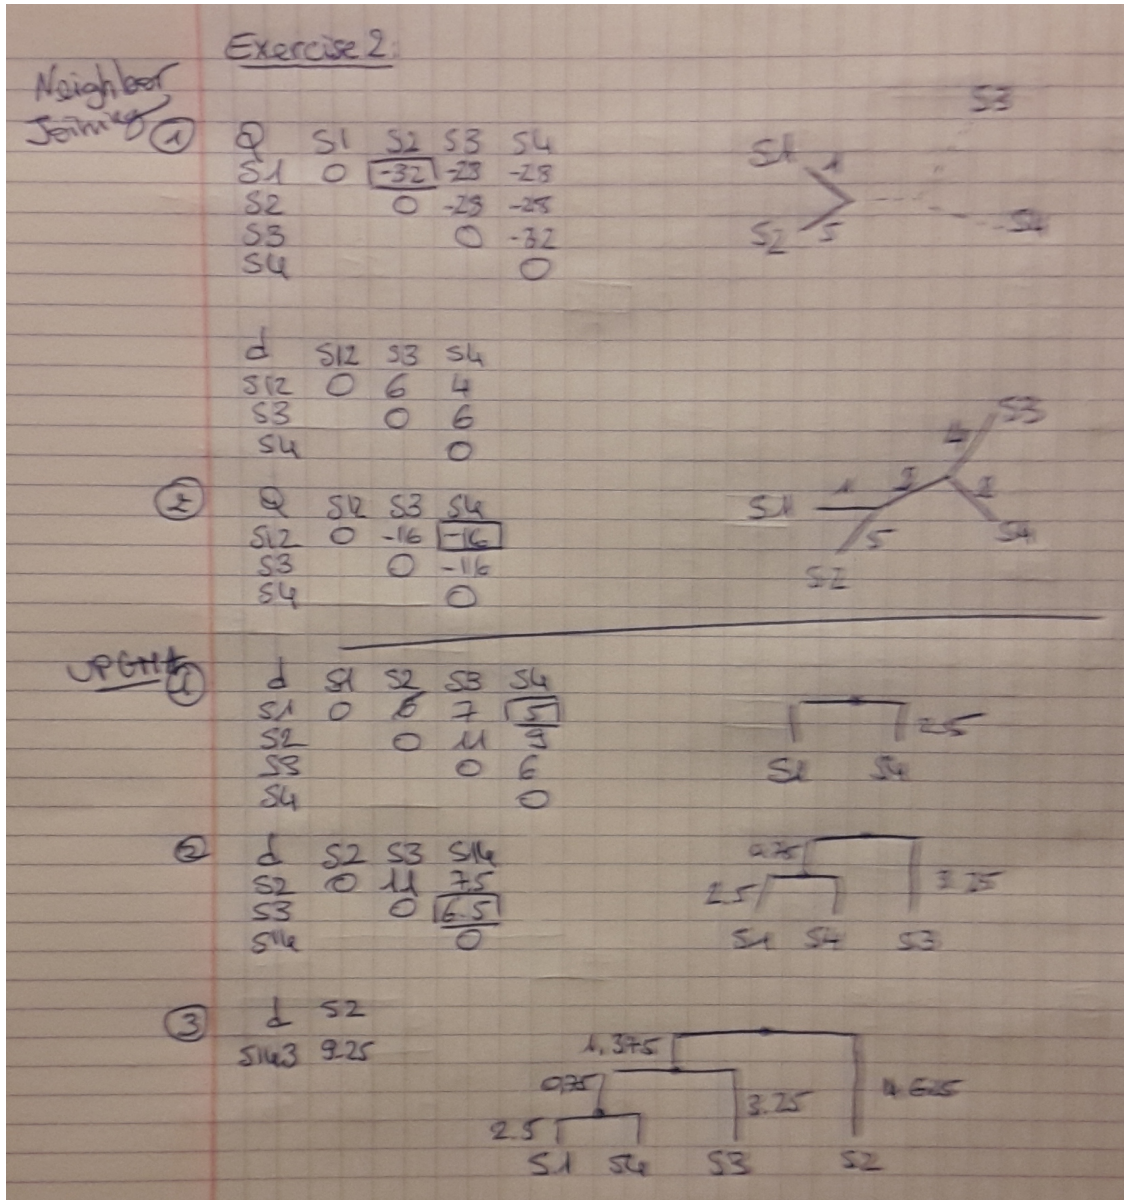 Exercise 2:
Neighbor
Joining
① Q S1 S2 S3 S4
S1 0 -32 -28 -28
S2 0 -28 -28
S3 0 -32
S4 0
S3
S1 1
S2 5
S4
d S12 S3 S4
S12 0 6 4
S3 0 6
S4 0
② Q S12 S3 S4
S12 0 -16 -16
S3 0 -16
S4 0
S3
4
S1 1 2 2
5 S4
S2
UPGMA
① d S1 S2 S3 S4
S1 0 6 7 5
S2 0 11 9
S3 0 6
S4 0
2.5
S1 S4
② d S2 S3 S14
S2 0 11 7.5
S3 0 6.5
S14 0
0.75
2.5 3.25
S1 S4 S3
③ d S2
S143 9.25
1.375
0.75 4.625
3.25
2.5
S1 S4 S3 S2